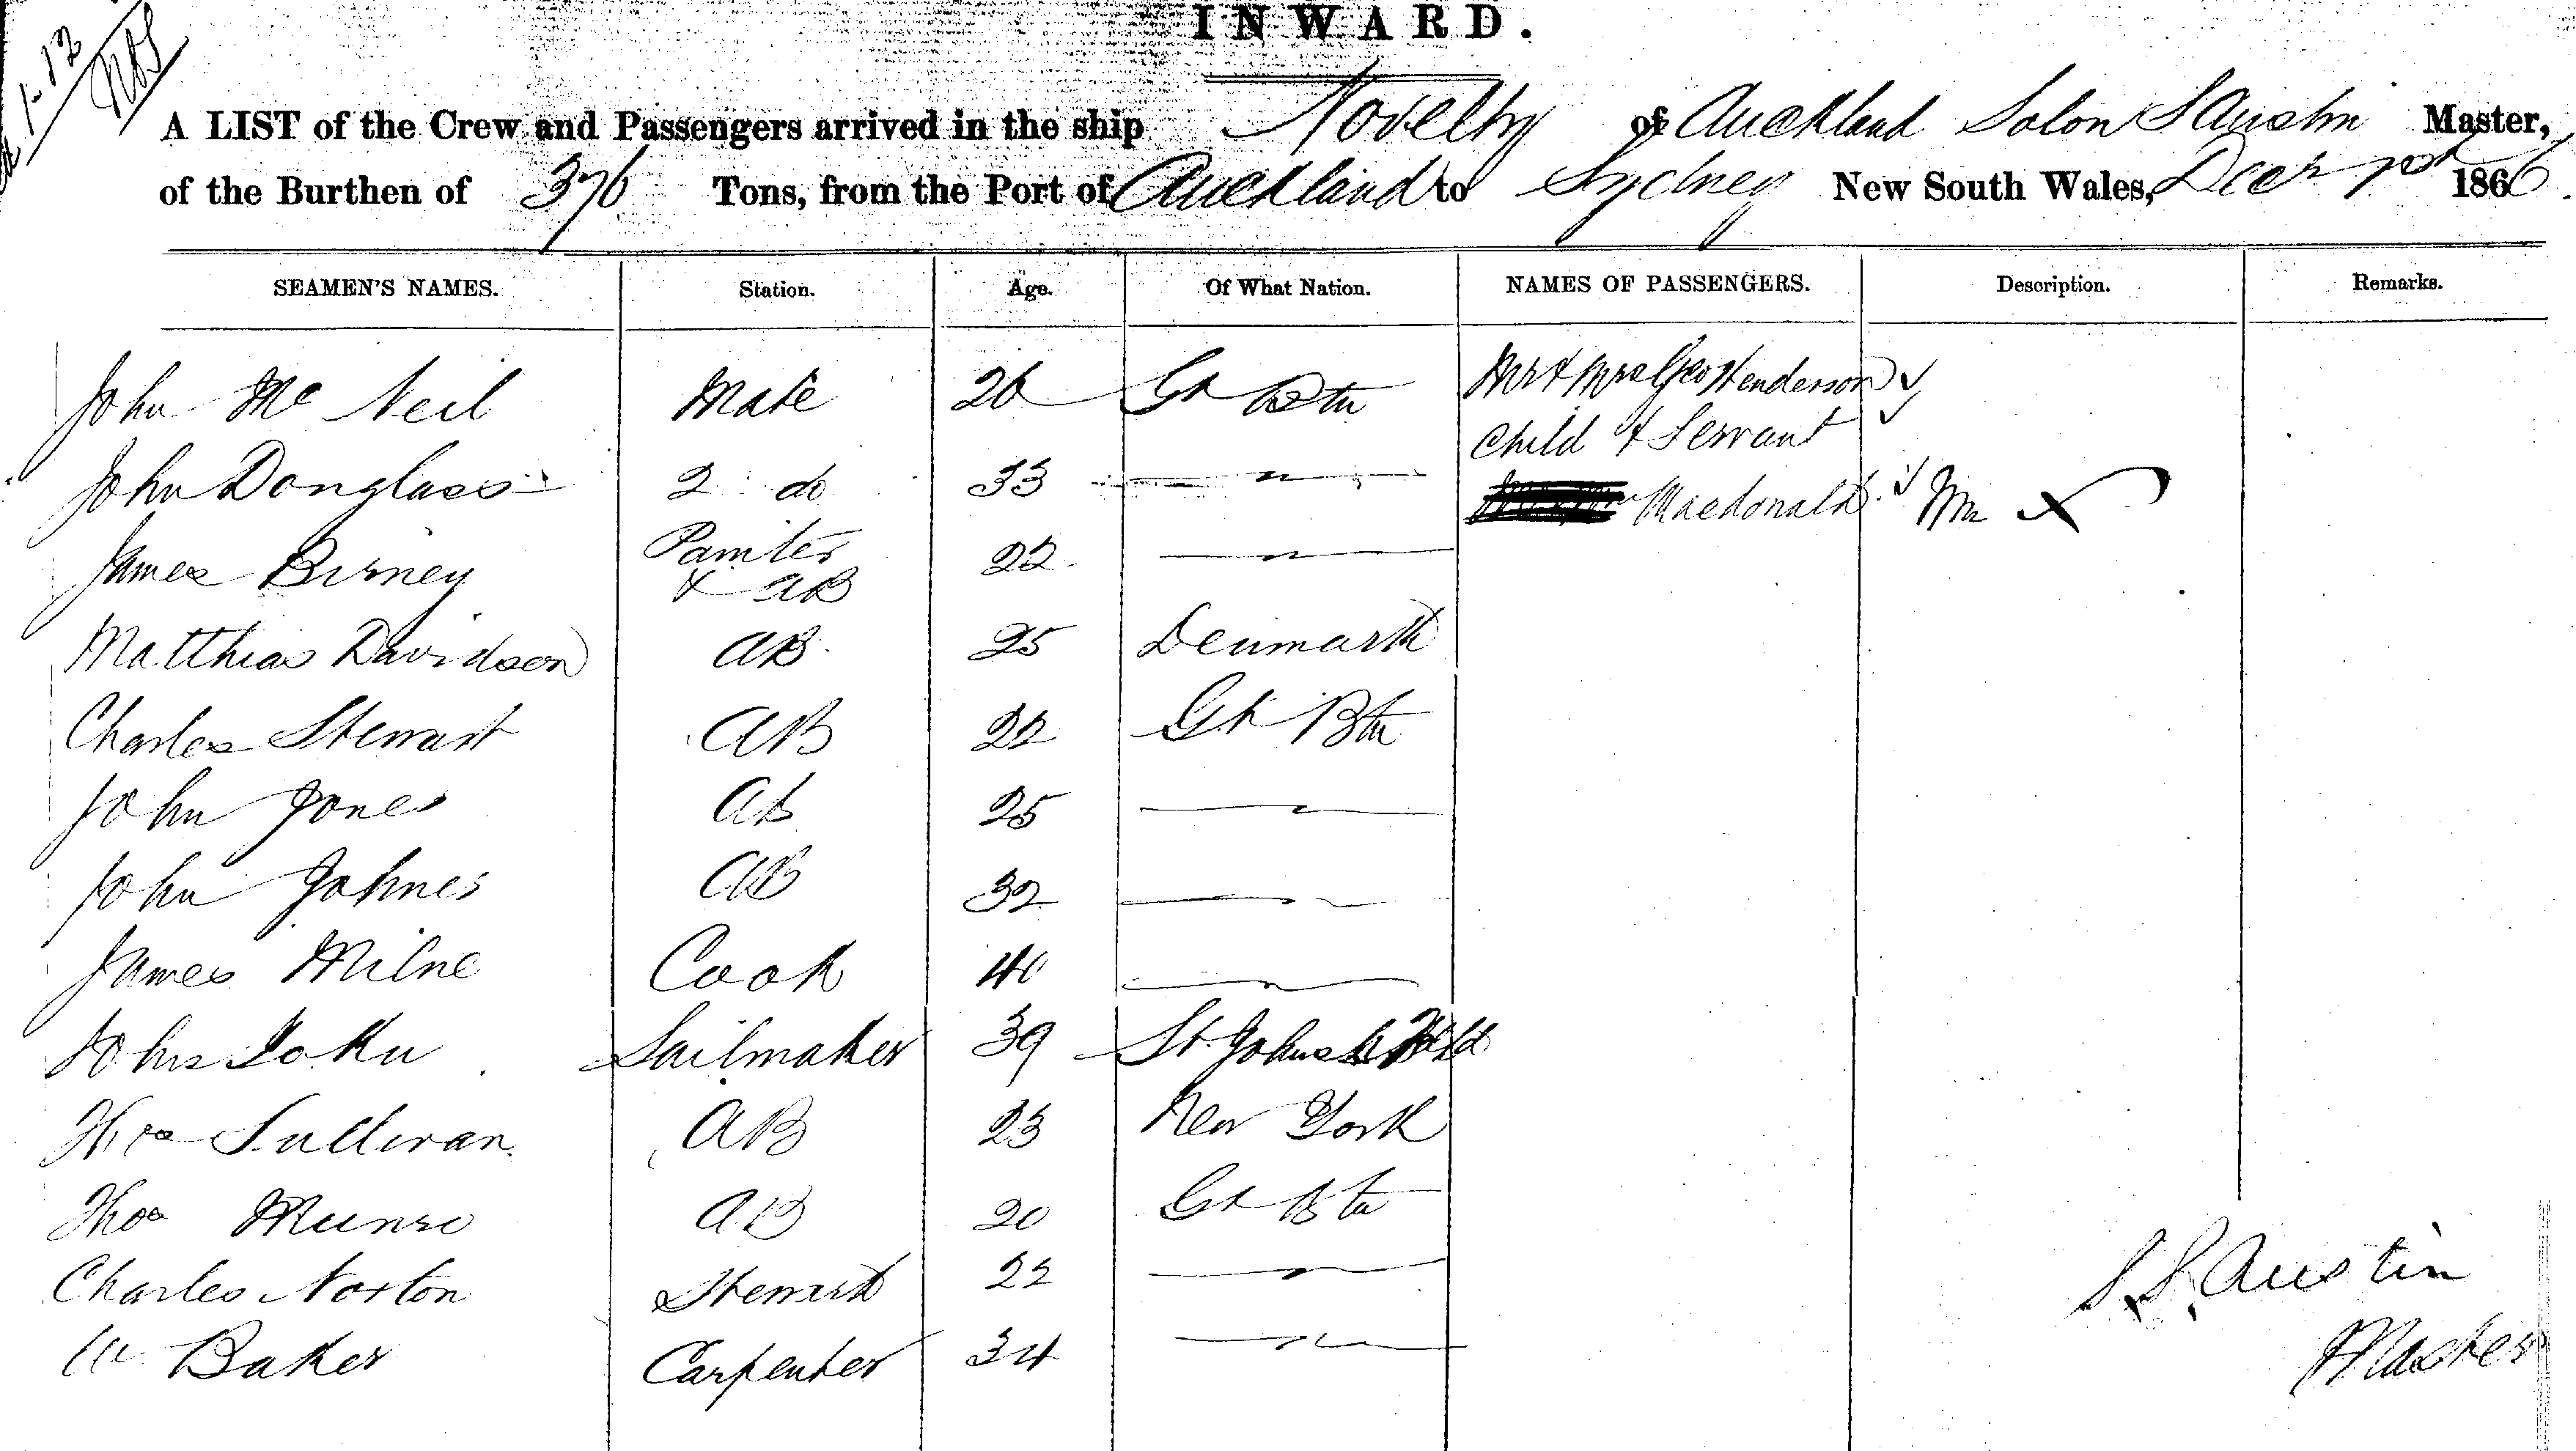 1-12
INWARD.
A LIST of the Crew and Passengers arrived in the ship Novelty of Auckland Solon S Austin Master,
of the Burthen of 376 Tons, from the Port of Auckland to Sydney New South Wales, Decr 1st 1866.
SEAMEN'S NAMES. Station. Age. Of What Nation. NAMES OF PASSENGERS. Description. Remarks.
John Mc Neil Mate 26 Gt Btn Mr & Mrs Geo Henderson
Child & Servant
John Douglass 2 do 33 — " — Macdonald Mr X
James Birney Painter & AB 22 — " —
Matthias Davidson AB 25 Denmark
Charles Stewart AB 22 Gt Btn
John Jones AB 25 — " —
John Johnes AB 32 — " —
James Milne Cook 40 — " —
John Sailmaker 39 St Johns
Thos Sullivan AB 23 New York
Thos Munro AB 20 Gt Btn
Charles Norton Steward 22 — " —
W Baker Carpenter 34 — " —
S. S. Austin
Master